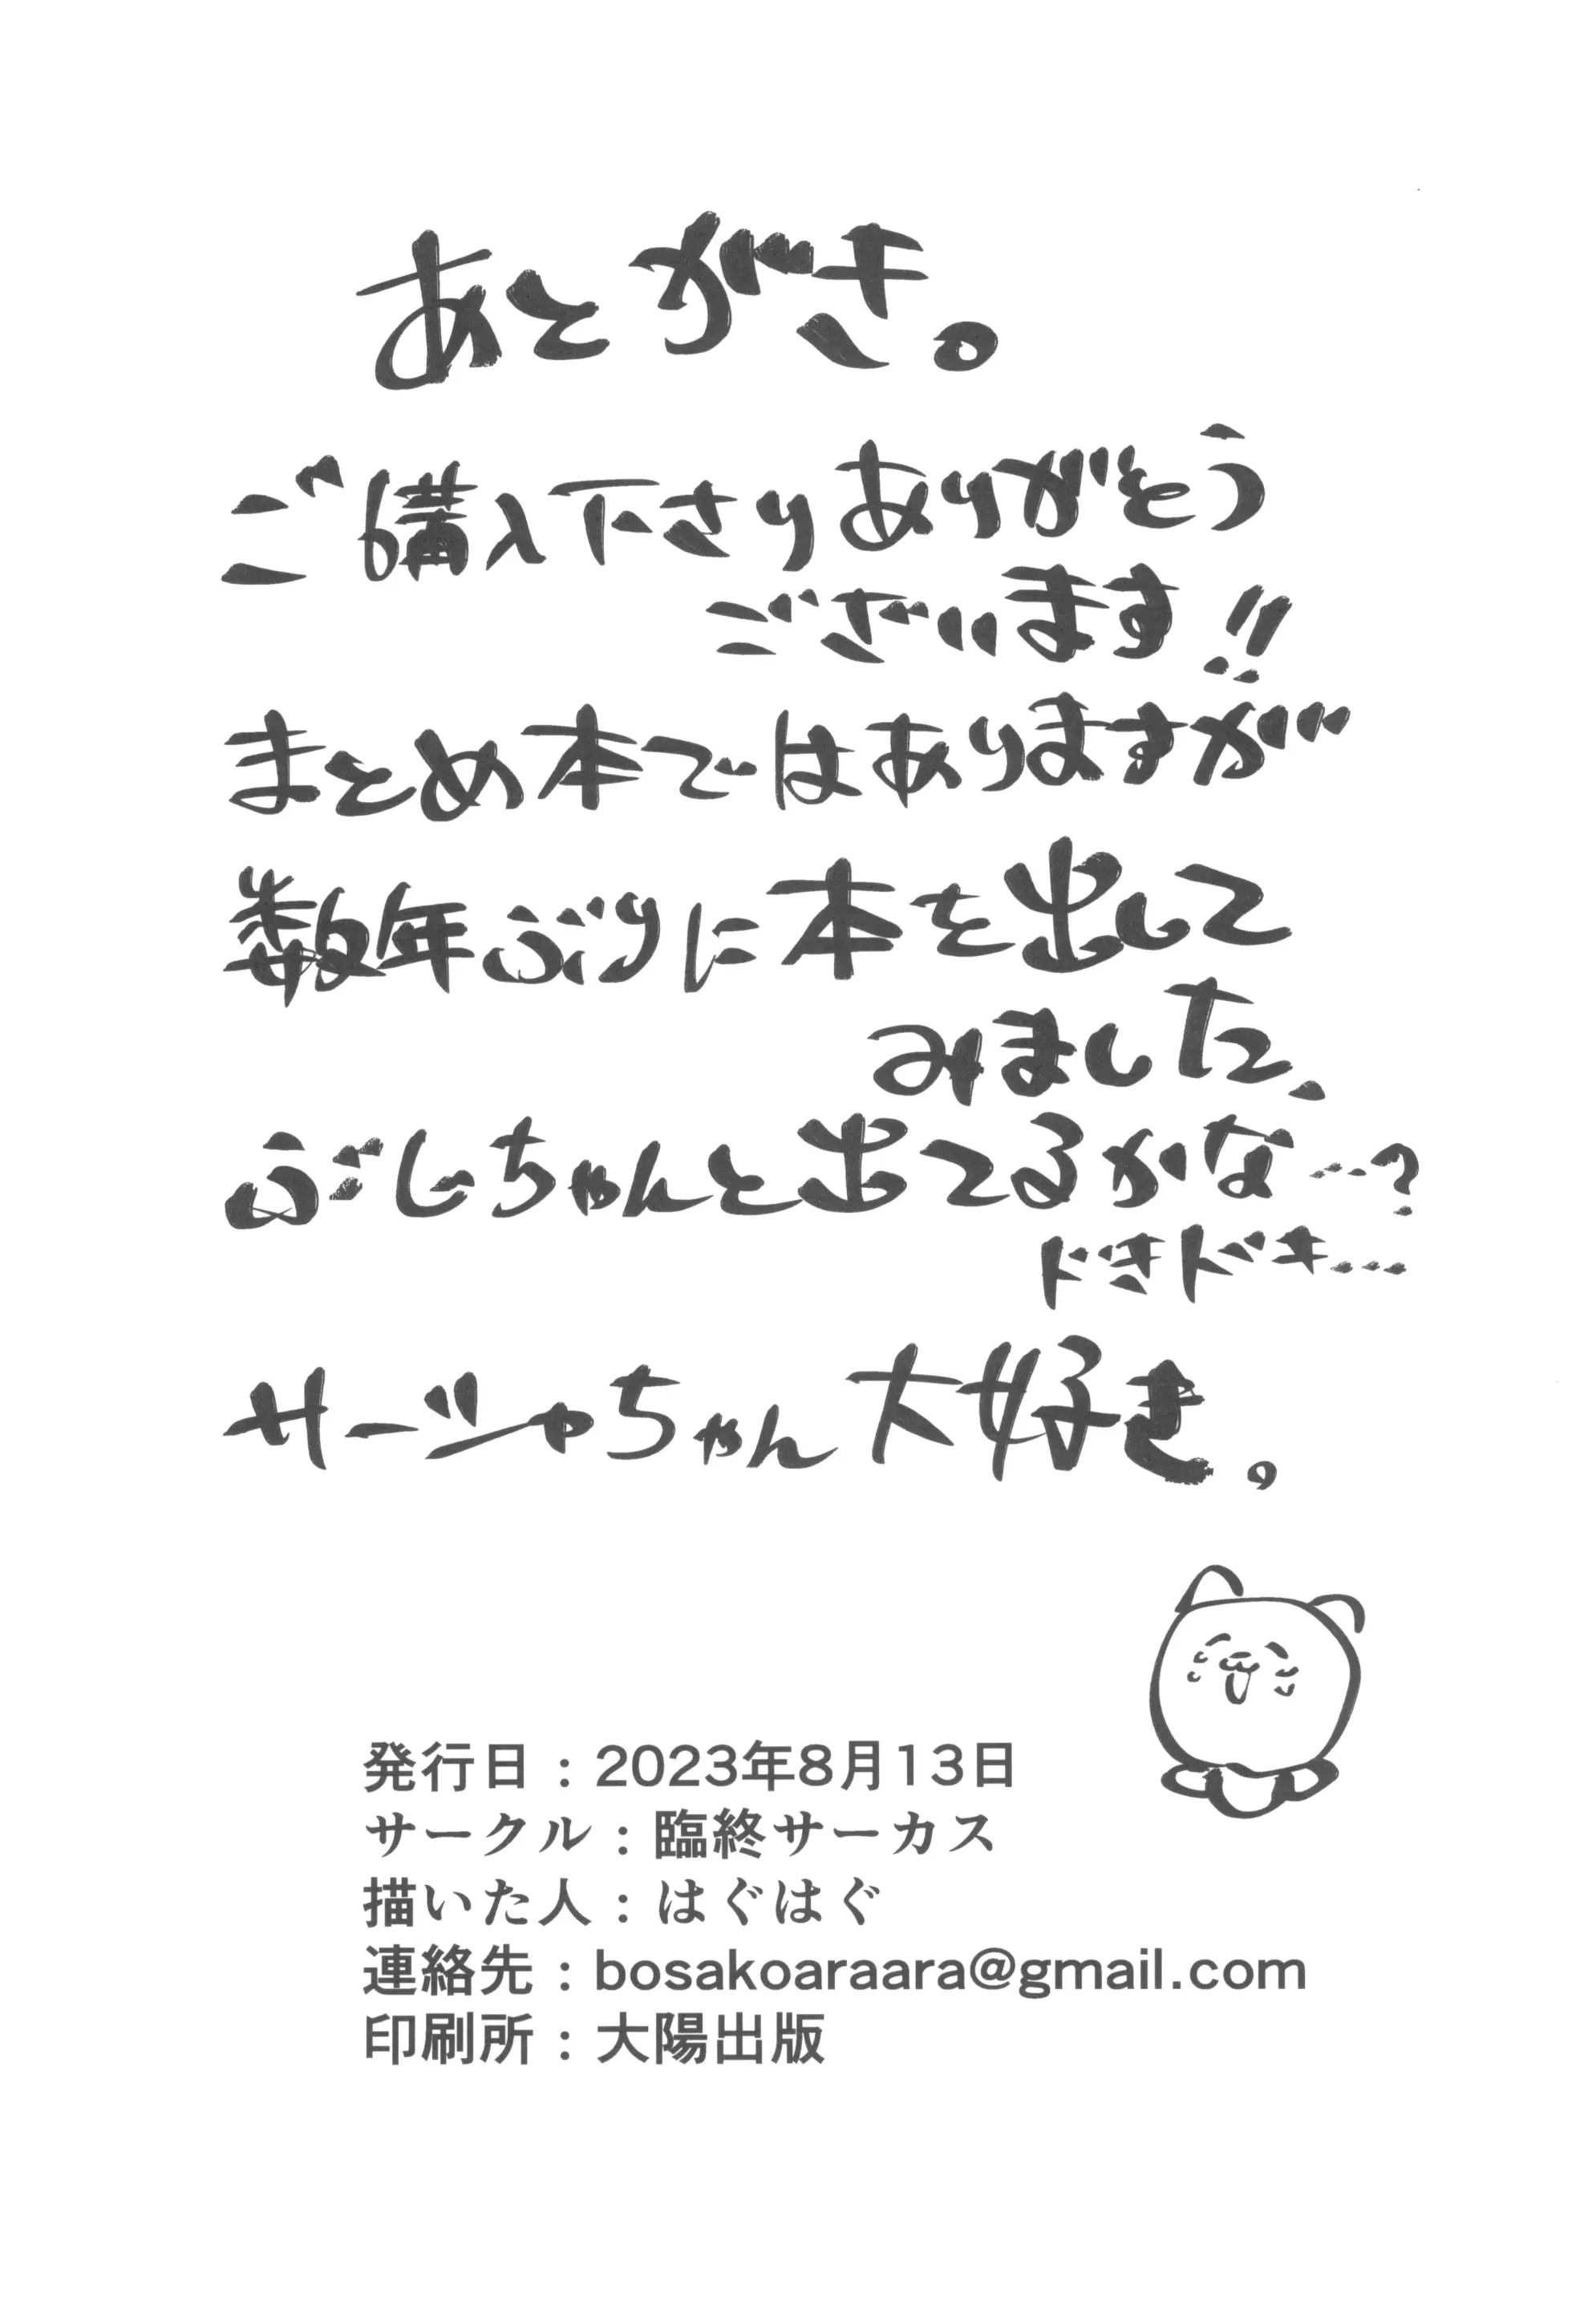 あとがき。
ご購入下さりありがとう
ございます!!
まとめ本ではありますが
数年ぶりに本を出して
みました、
ぶじちゃんと出てるかな……?
ドきドキ……
サーシャちゃん大好き。
発行日：2023年8月13日
サークル：臨終サーカス
描いた人：はぐはぐ
連絡先：bosakoaraara@gmail.com
印刷所：大陽出版